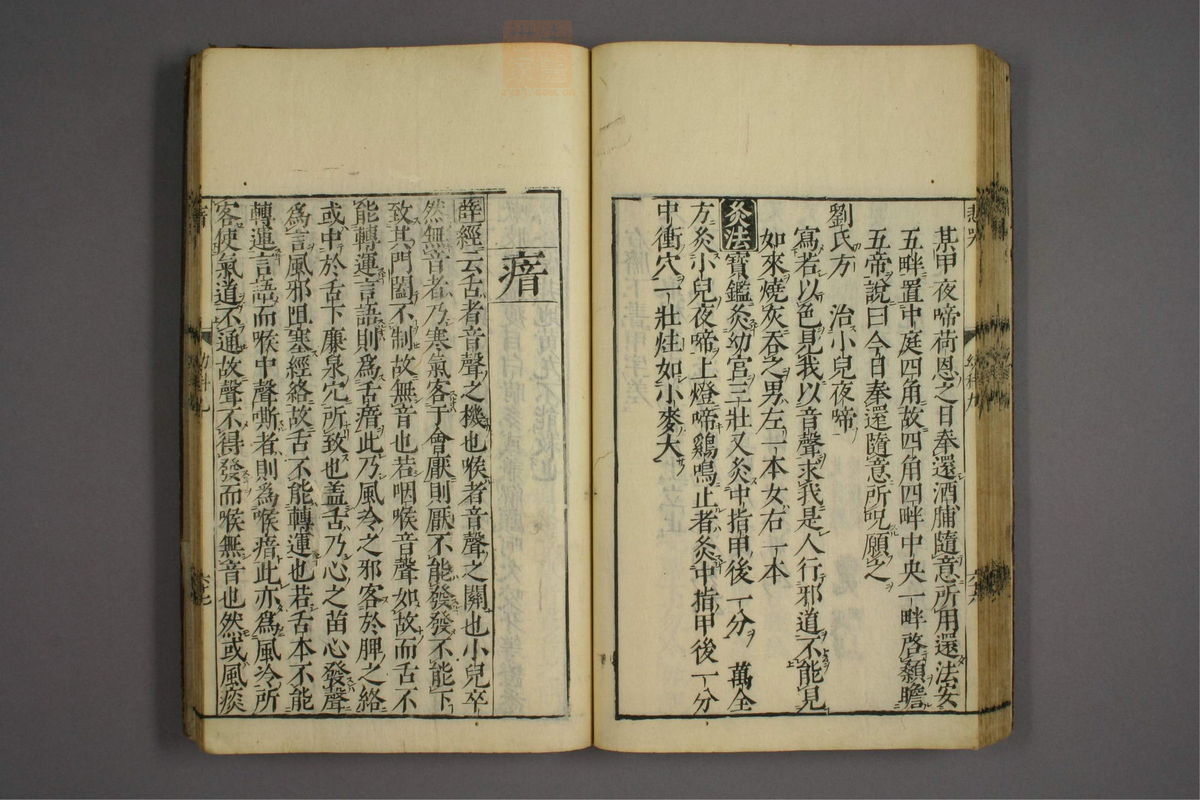 某甲夜啼荷恩之日奉還酒脯隨意所用還法安
五畔置中庭四角故四角四畔中央一畔啓顙瞻
五帝說曰今日奉還隨意所呪願之
劉氏方　治小兒夜啼
寫若以色見我以音聲求我是人行邪道不能見
如來燒灰吞之男左一本女右一本
灸法寶鑑灸幼宮三壯又灸中指甲後一分　萬全
方灸小兒夜啼上燈啼鷄鳴止者灸中指甲後一分
中衝穴一壯炷如小麥大
瘖
薛經云舌者音聲之機也喉者音聲之關也小兒卒
然無音者乃寒氣客于會厭則厭不能發發不能下
致其門闔不制故無音也若咽喉音聲如故而舌不
能轉運言語則爲舌瘖此乃風冷之邪客於脾之絡
或中於舌下廉泉穴所致也盖舌乃心之苗心發聲
爲言風邪阻塞經絡故舌不能轉運也若舌本不能
轉運言語而喉中聲嘶者則為喉瘖此亦爲風冷所
客使氣道不通故聲不得發而喉無音也然或風痰
瘖
幼科九
六十七